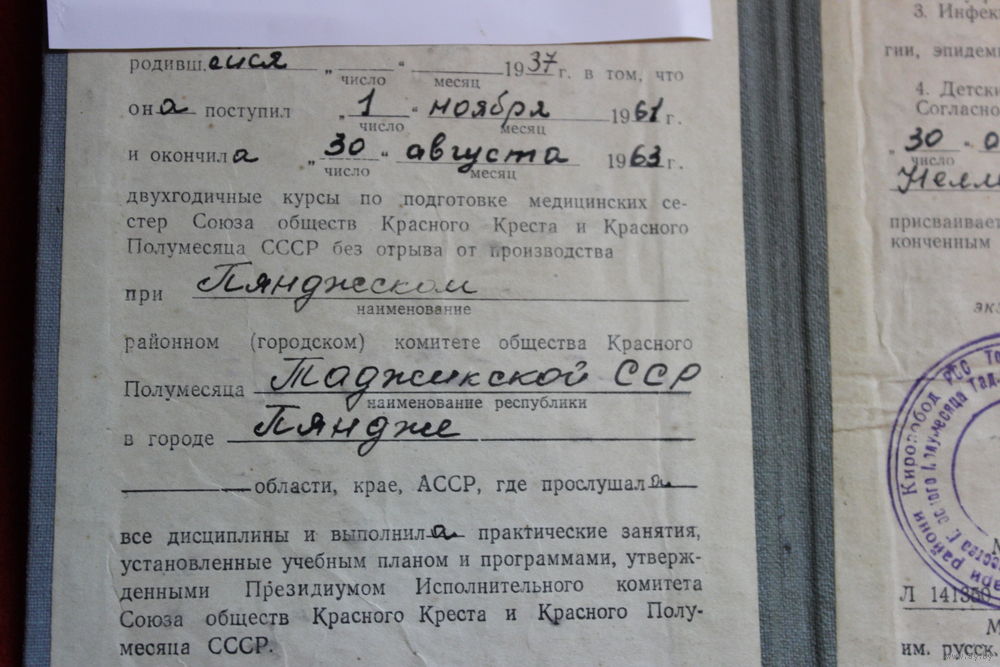 родивш.ейся „ “ 1937 г. в том, что
число месяц
она поступил „ 1 “ ноября 1961 г.
число месяц
и окончила „ 30 “ августа 1963 г.
число месяц
двухгодичные курсы по подготовке медицинских се-
стер Союза обществ Красного Креста и Красного
Полумесяца СССР без отрыва от производства
при Пянджском
наименование
районном (городском) комитете общества Красного
Полумесяца Таджикской ССР
наименование республики
в городе Пяндже
области, крае, АССР, где прослушала
все дисциплины и выполнила практические занятия,
установленные учебным планом и программами, утверж-
денными Президиумом Исполнительного комитета
Союза обществ Красного Креста и Красного Полу-
месяца СССР.
3. Инфек
гии, эпидем
4. Детски
Согласно
„ 30 “ а
число
Нелл
присваивает
конченным
экз
райони Кировобод РСС
Л 141350
М
им. русск.